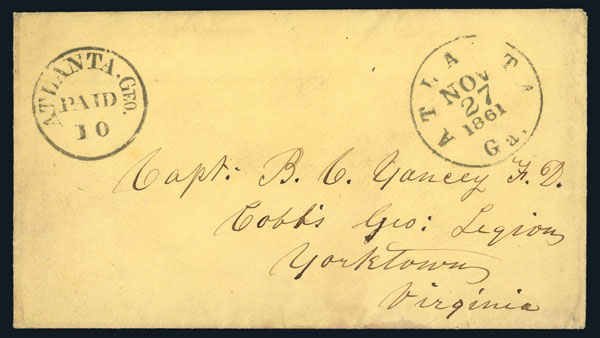 ATLANTA, GEO.
PAID
10
ATLA TA
NOV
27
1861
Ga.
Capt: B. C. Yancey F. D.
Cobb's Geo: Legion
Yorktown
Virginia